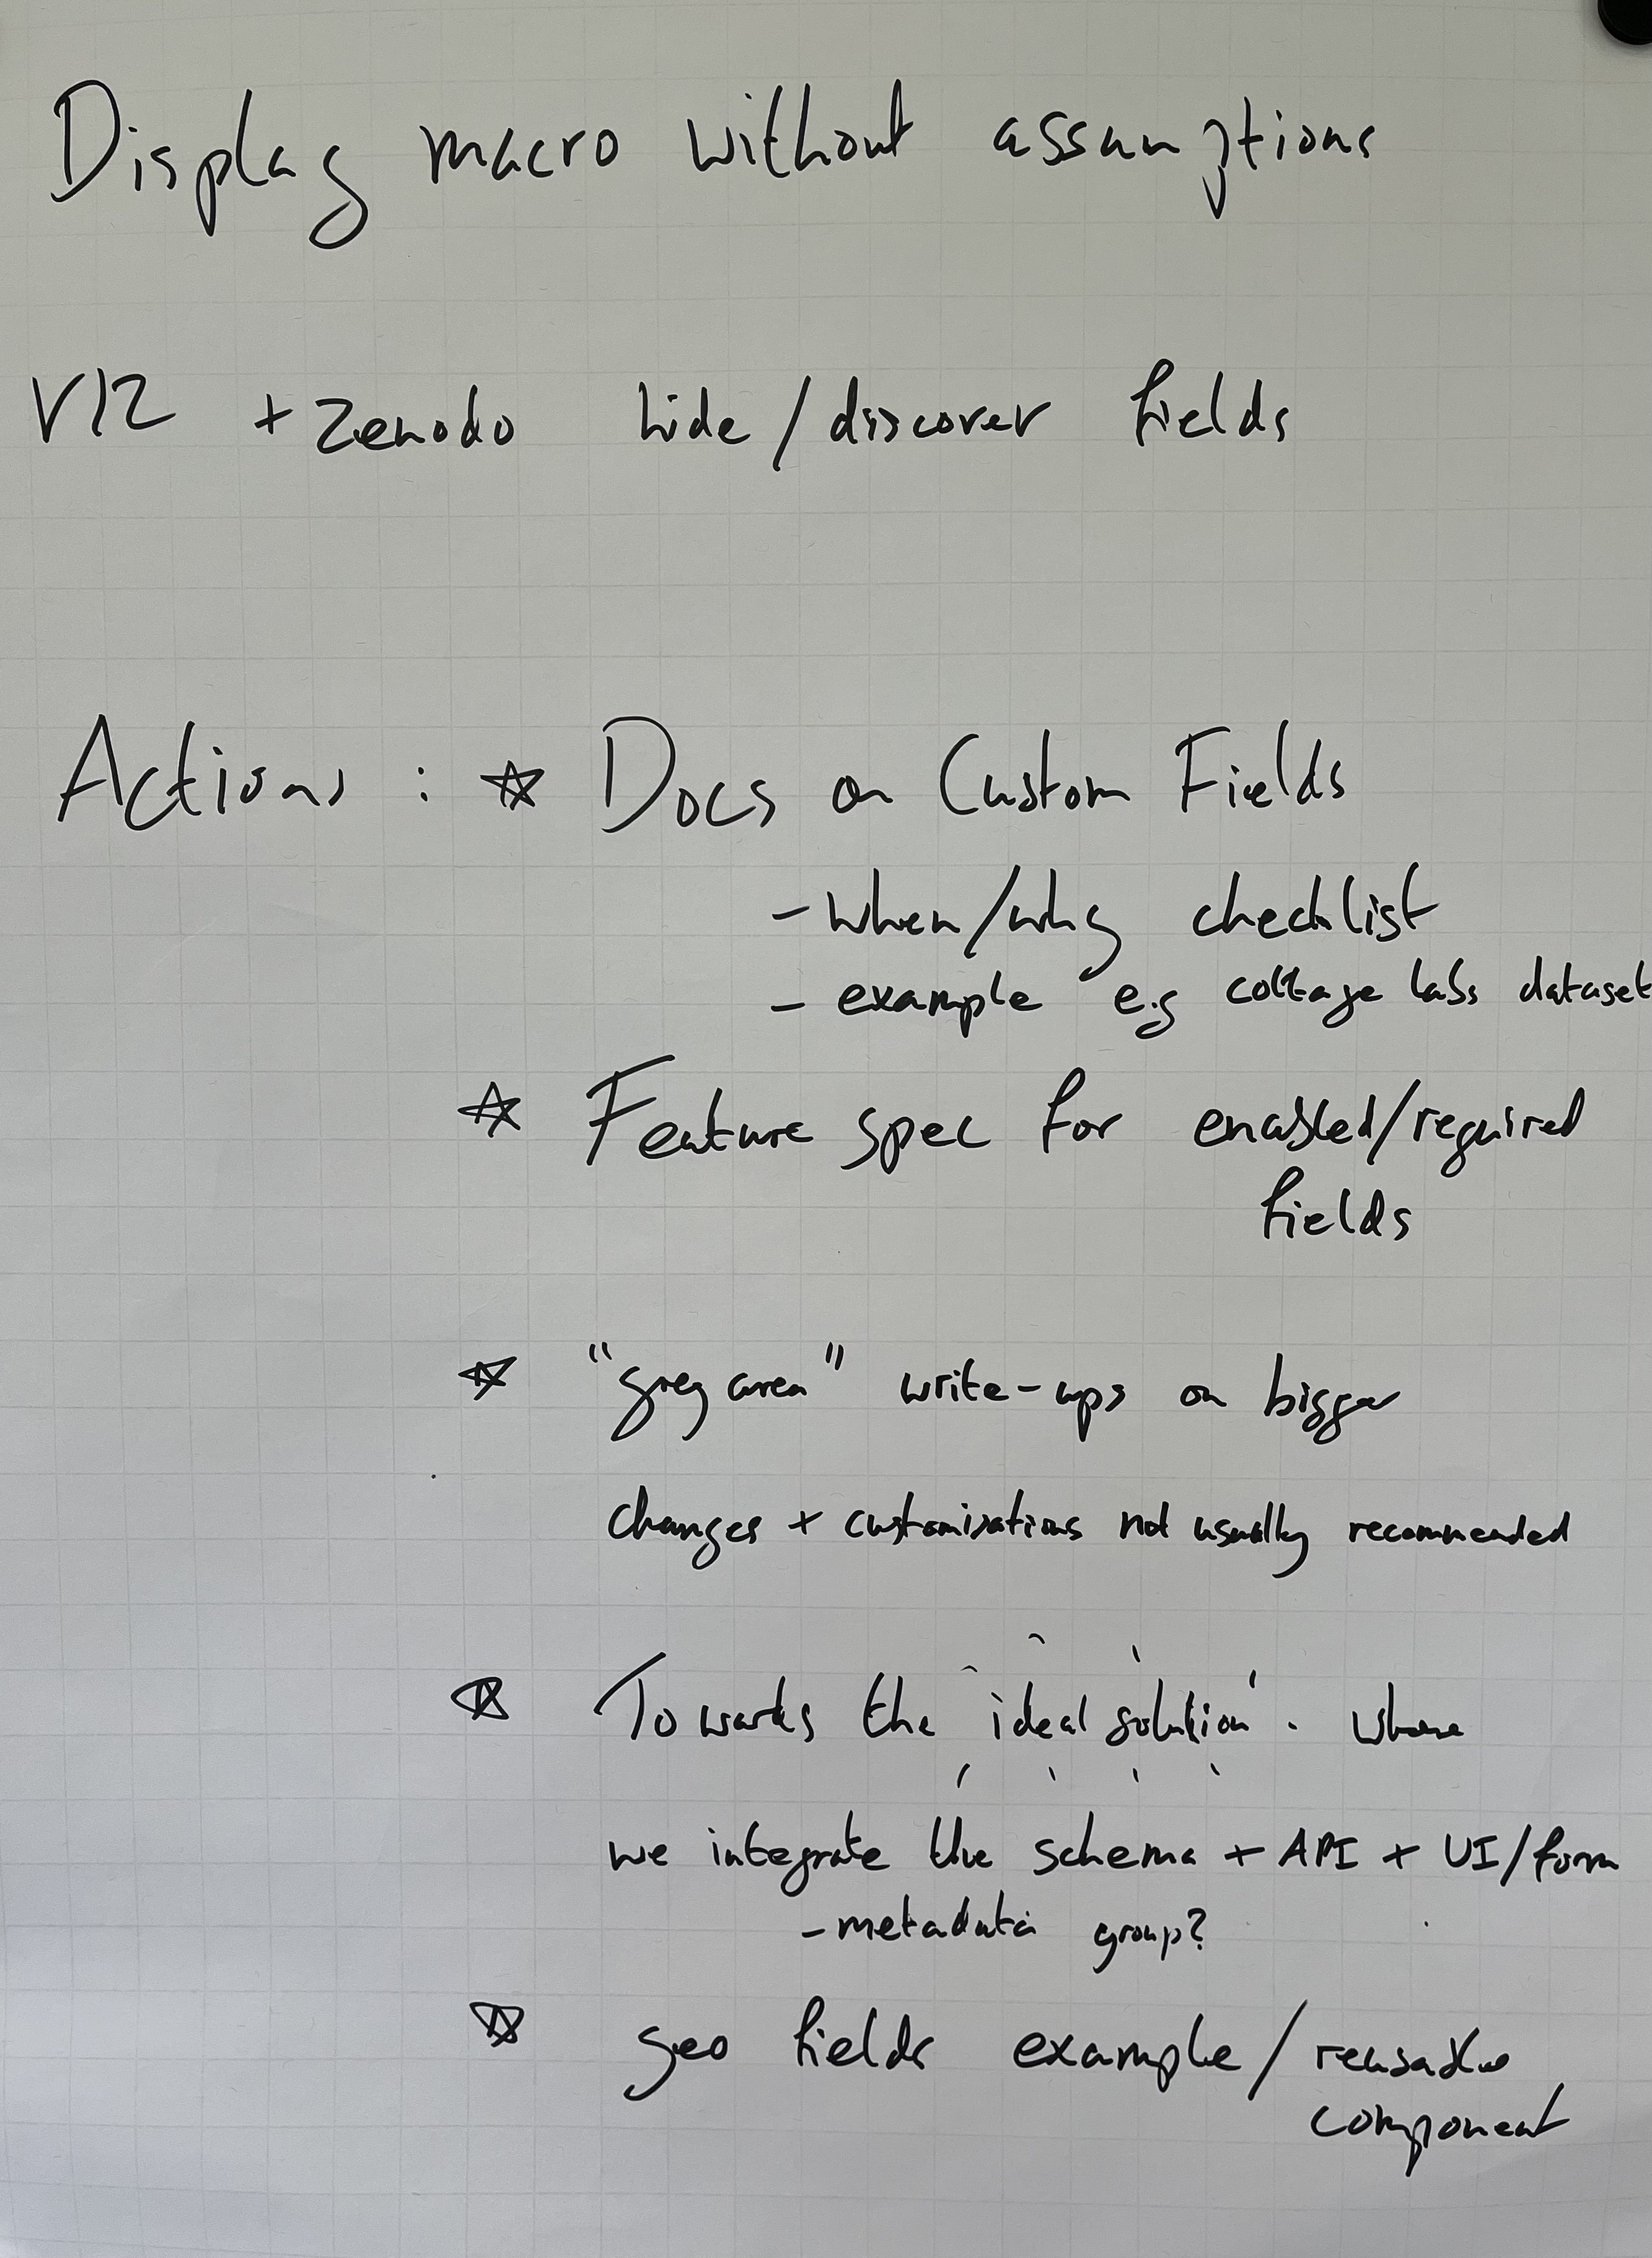 Display macro without assumptions
V12 + Zenodo hide/discover fields
Actions : ☆ Docs on Custom Fields
- when/why checklist
- example e.g cottage labs dataset
☆ Feature spec for enabled/required
fields
☆ "grey area" write-ups on bigger
changes + customisations not usually recommended
☆ Towards the 'ideal solution'. where
we integrate the schema + API + UI/form
- metadata group?
☆ geo fields example/reusable
component